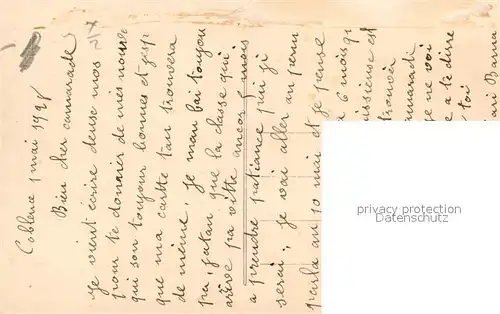 Coblence 1 mai 192
Bien cher camarade
Je vient écrire deuse mos
pour te donnér de mes nouve
qui son toujour bonnes et jesp
que ma cartte tan trouvera
de même. Je man bai toujou
pa, jatan que la classe qui
arêve pa vitte ancor 5 mois
a prendre patiance puis ji
serai, je vai aller an perm
parla au 10 mai et je pense
a 6 mois qi
issiense est
trouvér
camaradi
ge ne voi
a te dirre
toi
ai Bama
privacy protection
delcampe.net